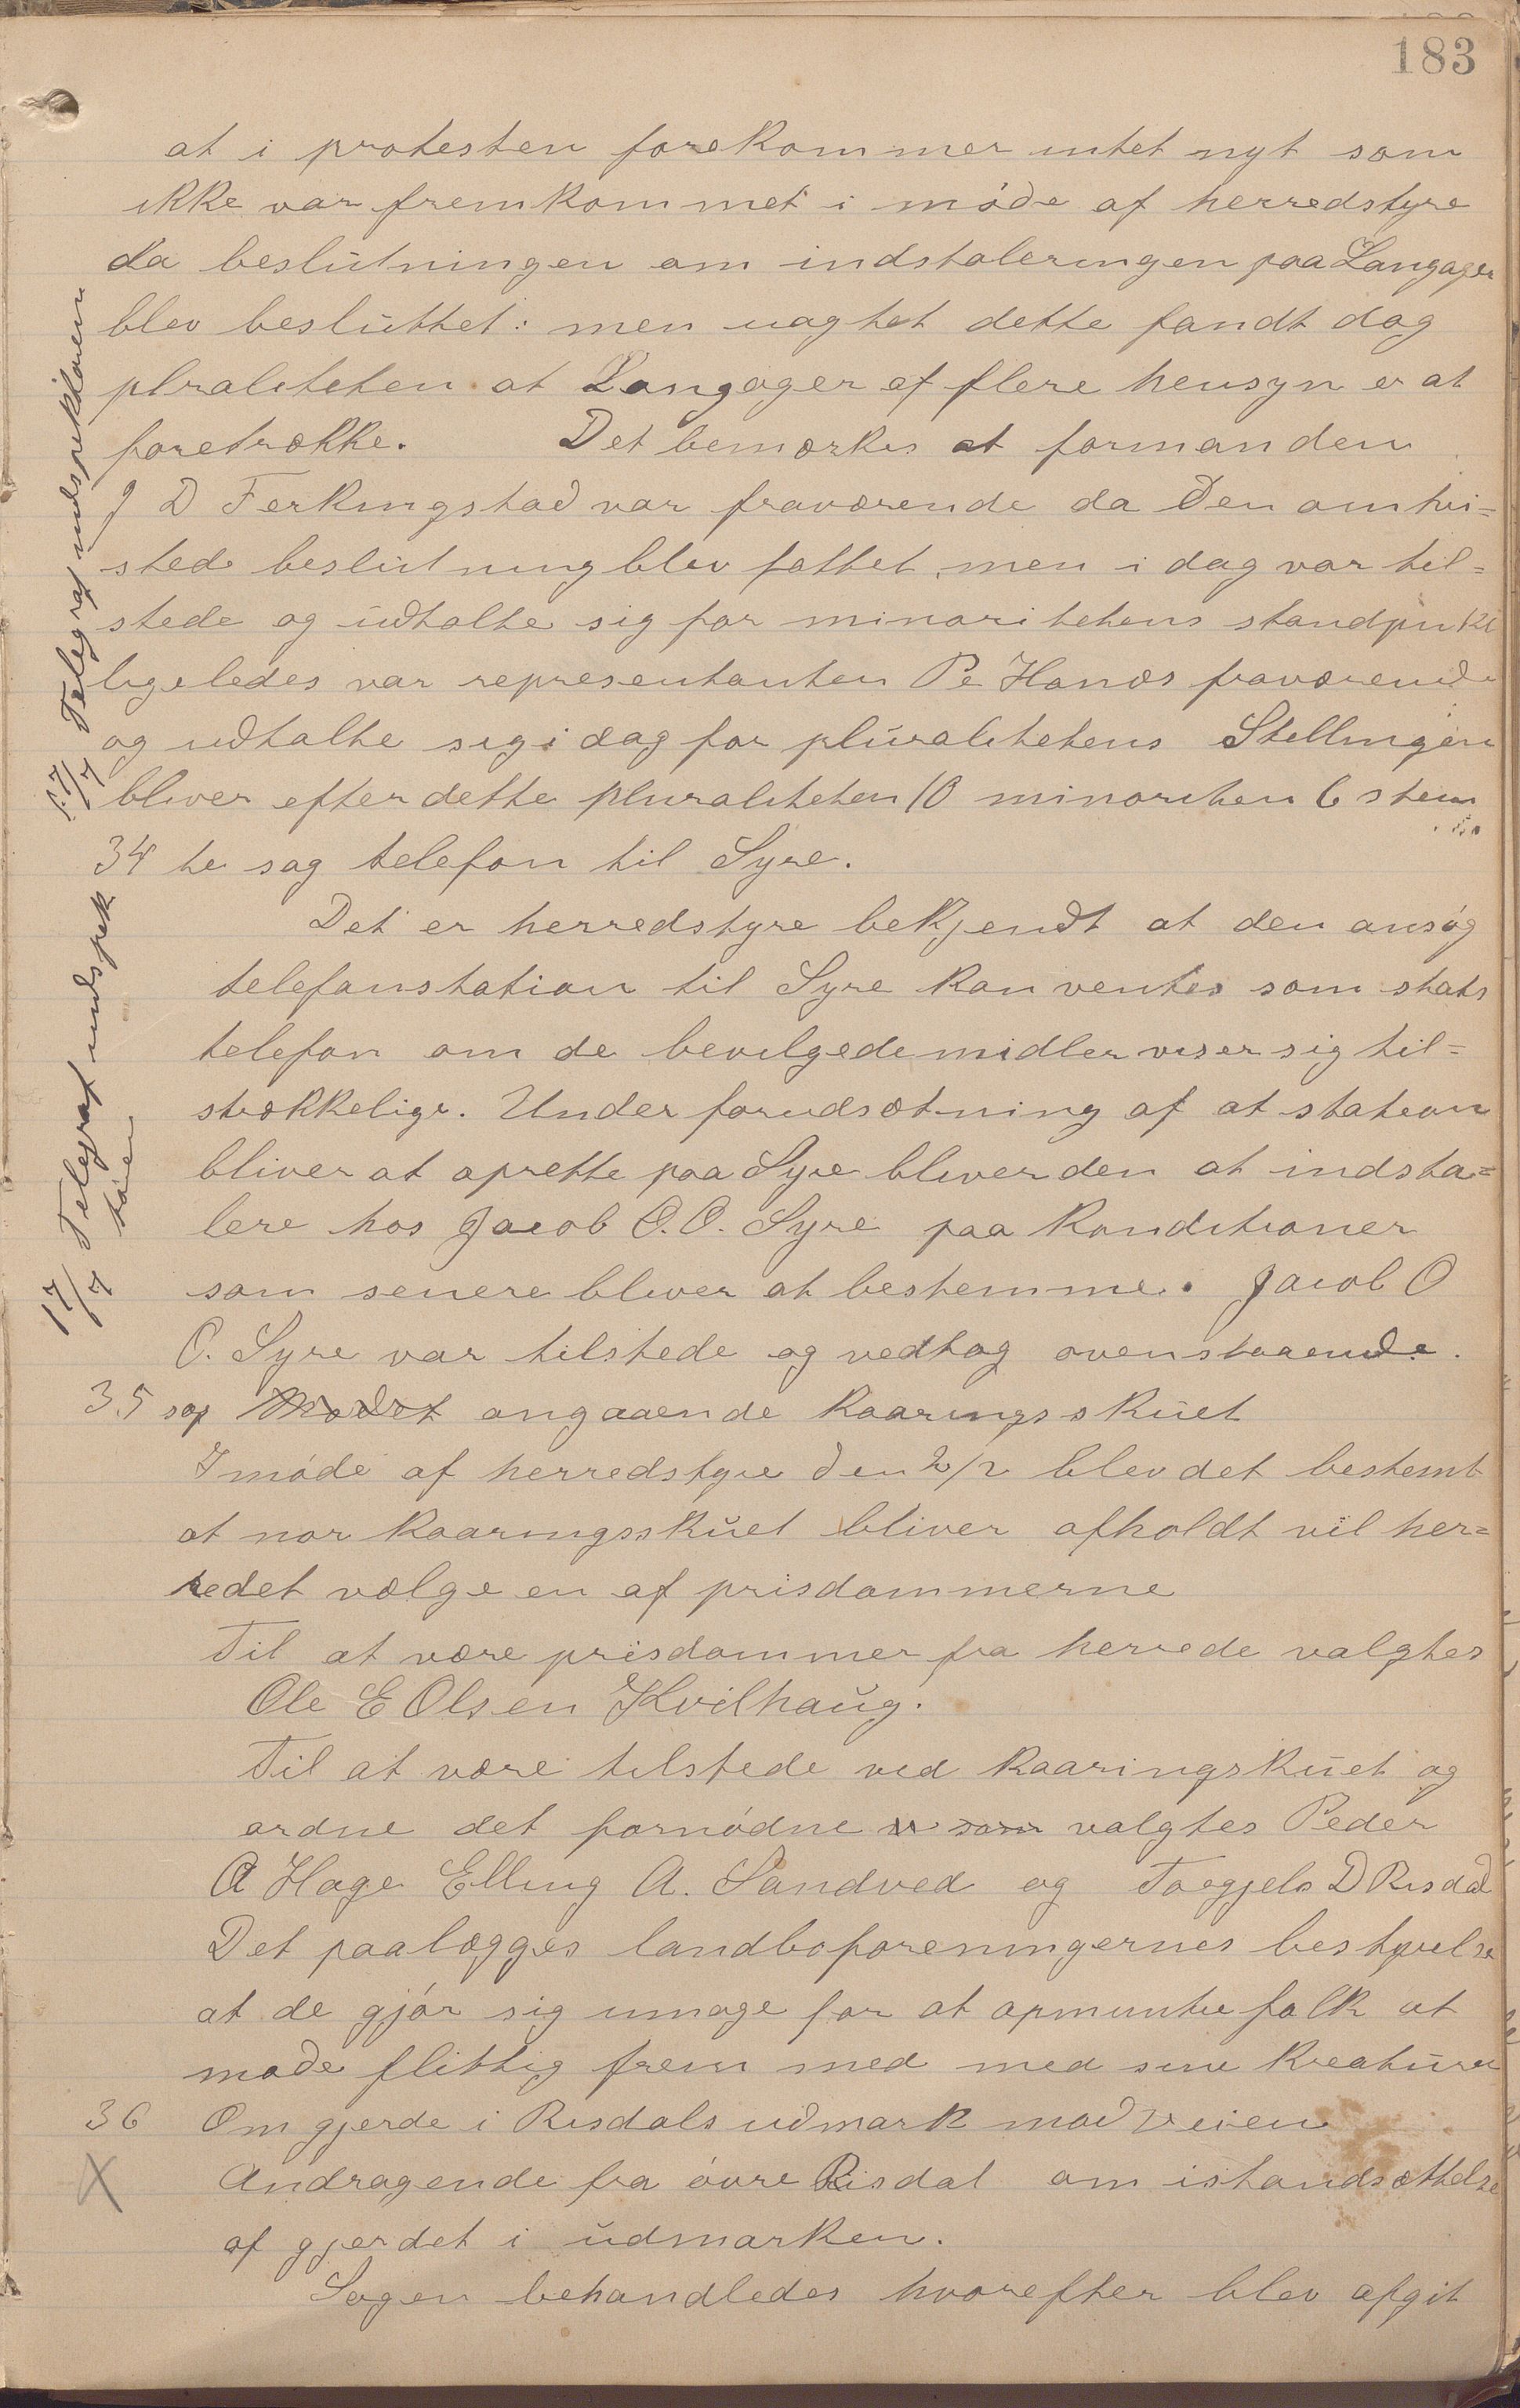 183
at i protesten forekommer intet nyt som
ikke var fremkommet i møde af herredstyre
da beslutningen om indstaleringen paa Langager
blev besluttet: men uagtet dette fandt dog
plraliteten at Langager af flere hensyn er at
foretrække. Det bemærkes at formanden
J D Ferkingstad var fraværende da den omtvi=
stede beslutning blev fattet, men i dag var til=
stede og udtalte sig for minoritetens standpunkt
ligeledes var representanten Pe Hanøs fraværende
og udtalte sig i dag for pluralitetens Stellingen
bliver efter dette pluraliteten 10 minoriten 6 stem
17/7 Telegrafindspektøren
34 te sag telefon til Syre.
Det er herredstyre bekjendt at den ansøg
telefonstation til Syre kan ventes som stats
telefon om de bevilgede midler viser sig til=
strækkelige. Under forudsætning af at station
bliver at oprette paa Syre bliver den at indsta=
lere hos Jacob O.O. Syre paa Konditioner
som senere bliver at bestemme. Jacob O
O. Syre var tilstede og vedtog ovenstaaende.
17/7 Telegraf indspek
tøren
35 sag Mødet angaaende Kaaringsskuet
I møde af herredstyre den 2/2 blev det bestemt
at nor Kaaringsskuet bliver afholdt vil her=
redet vælge en af prisdommerne
Til at være prisdommer fra herrede valgtes
Ole E Olsen Kvilhaug.
Til at være tilstede ved Kaaringskuet og
ordne det fornødne som valgtes Peder
A Hage Elling A. Sandved og Torgjels D Risdal
Det paalægges landboforeningernes bestyrelse
at de gjør sig umage for at opmuntre folk at
møde flittig frem med med sine Kreaturer
36 Om gjerde i Risdals udmark mod veien
X Andragende fra øvre Risdal om istandsættelse
af gjerdet i udmarken.
Sagen behandledes hvorefter blev afgit